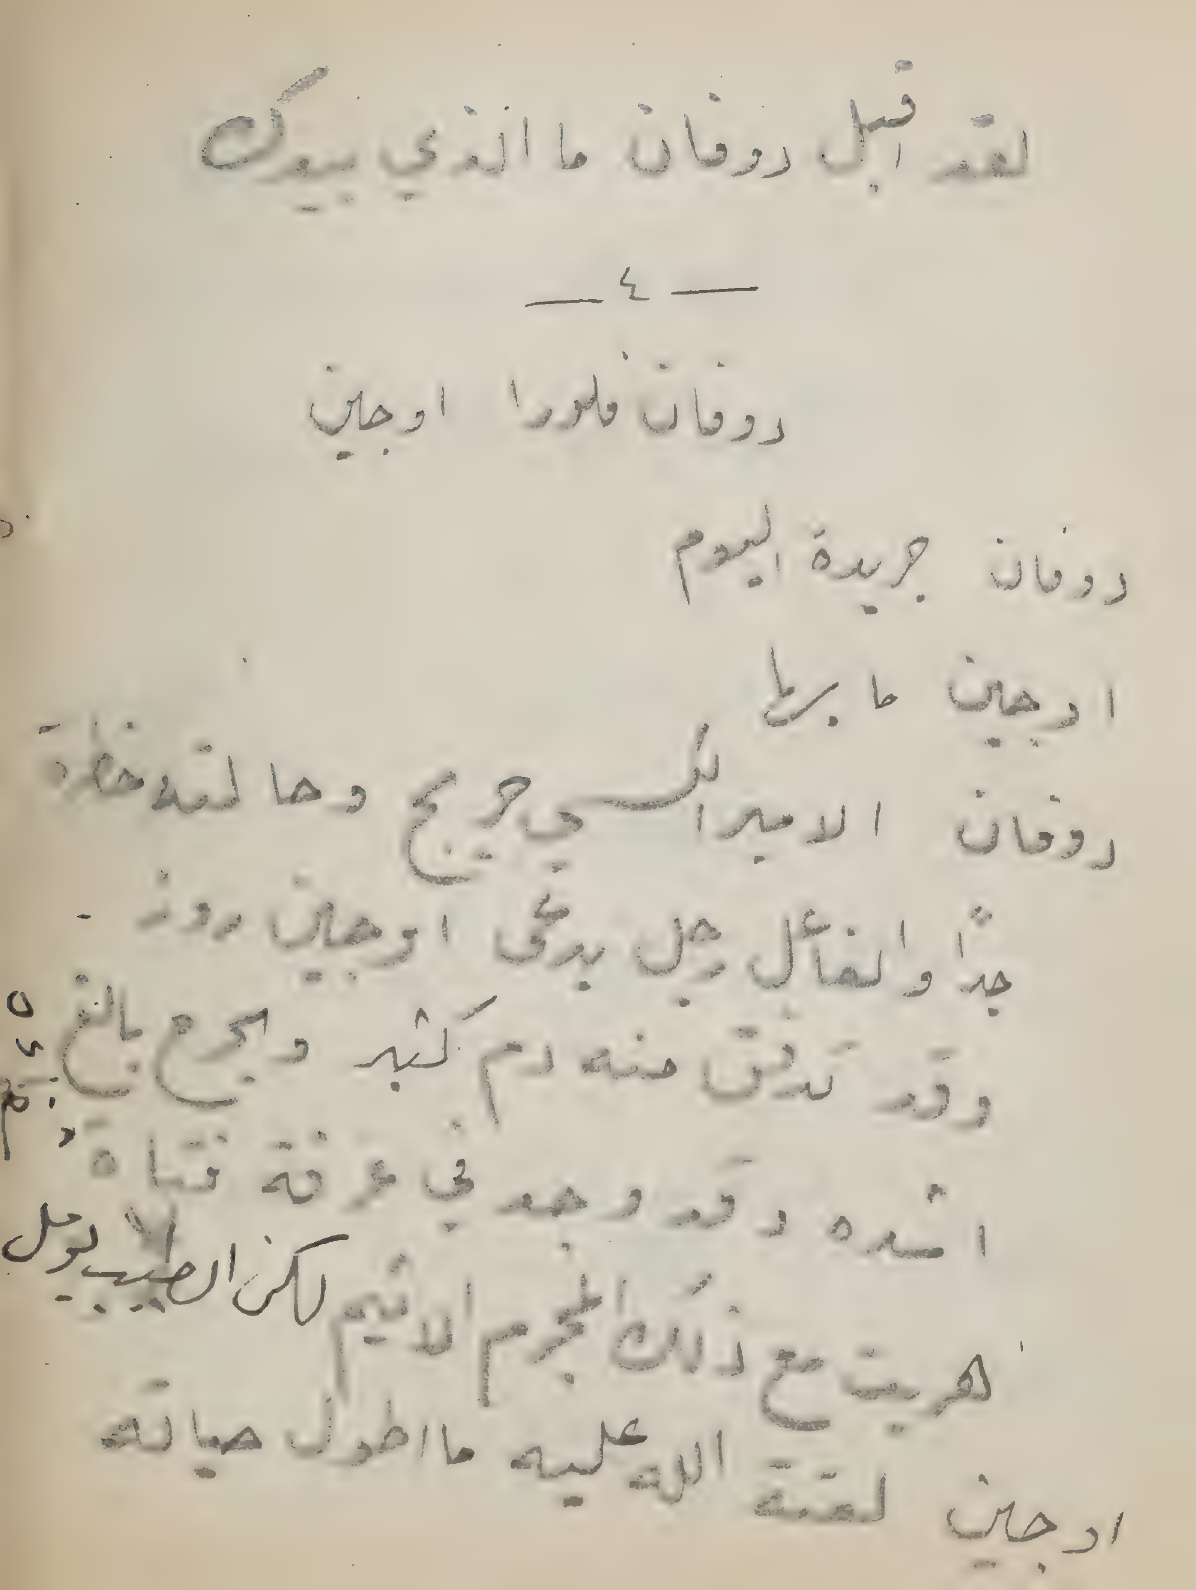 لقد اقبل دوفان ما الذي بيدك
— ٤ —
دوفان فلورا اوجين
دوفان جريدة اليوم
اوجين ما بها
دوفان الامير الكسي جريح وحالته خطرة
جداً والفاعل رجل يدعى اوجين روز
وقد تدفق منه دم كثير والجرح بالغ
اشده وقد وجد في غرفة فتاة
هربت مع ذلك المجرم الاثيم لكن الطبيب يومل
اوجين لعنة الله عليه ما اطول حياته